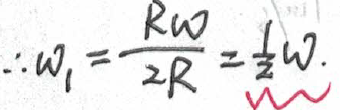 ∴ω₁ = Rω/2R = 1/2 ω.